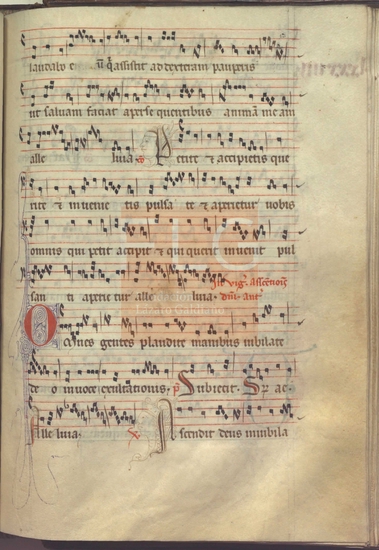 laudabo e u q̄ assistit ad dexteram pauperis
ut salvam faciat a persequentibus animā meam
alle luia co Petite & accipietis que
rite & invenie tis pulsa te & aperietur vobis
omnis qui petit accipit & qui querit invenit pul
san ti aperietur alle luia. In vig. Ascensiōis
Omnes gentes plaudite manibus iubilate
deo in voce exultationis. p̄ Subiecit. Sp ac.
Alleluia. Ascendit deus in iubila